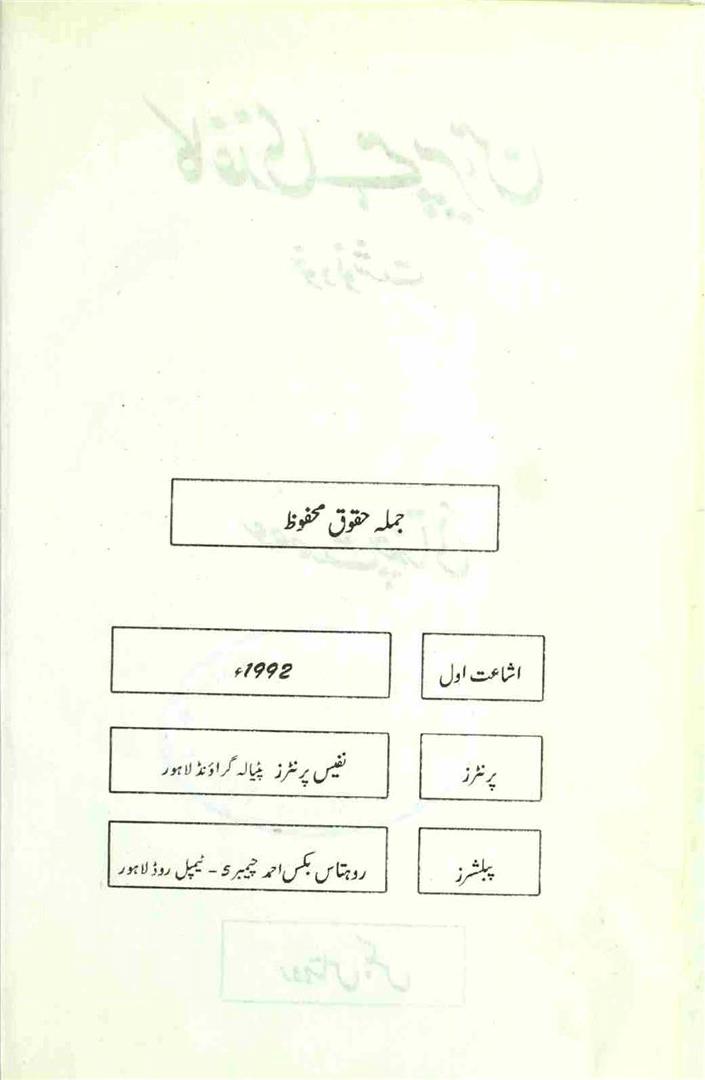 جملہ حقوق محفوظ
اشاعت اول 1992ء
پرنٹرز نفیس پرنٹرز پٹیالہ گراؤنڈ لاہور
پبلشرز روہتاس بکس احمد چیمبر 5 - ٹیمپل روڈ لاہور